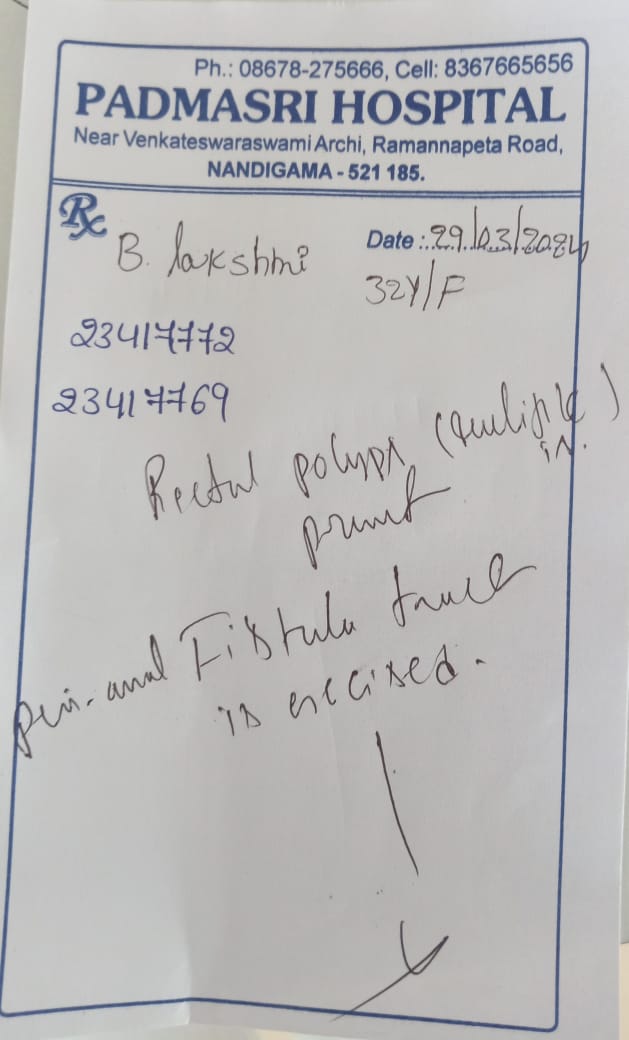 Ph.: 08678-275666, Cell: 8367665656
PADMASRI HOSPITAL
Near Venkateswaraswami Archi, Ramannapeta Road,
NANDIGAMA - 521 185.
Rx
B. lakshmi
Date : 29/03/2024
32Y/F
23417772
23417769
Rectal polyps (multiple)
is
present
peri-anal Fistula tract
is excised.